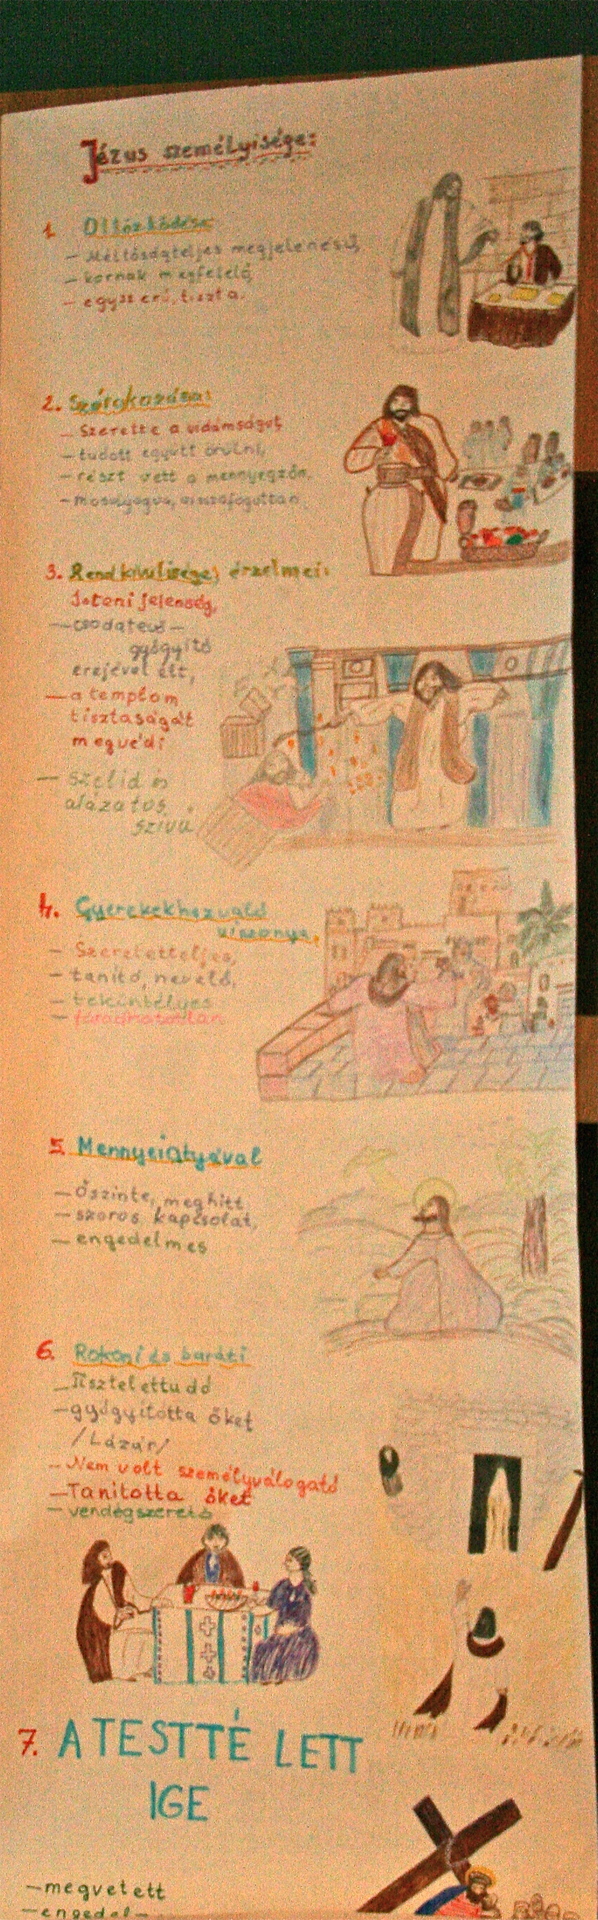 Jézus személyisége:
1. Öltözködése
- Méltóságteljes megjelenésű,
- kornak megfelelő,
- egyszerű, tiszta.
2. Szórakozása:
- Szerette a vidámságot,
- tudott együtt örülni,
- részt vett a mennyegzőn,
- mosolyogva, visszafogottan
3. Rendkívüliségei, érzelmei:
Isteni jelenség,
- csodatevő -
gyógyító
erejével élt,
- a templom
tisztaságát
megvédi
- szelíd és
alázatos
szívű
4. Gyerekekhez való
viszonya,
- Szeretetteljes,
- tanító, nevelő,
- tekintélyes
- fáradhatatlan
5. Mennyei Atyával
- őszinte, meghitt
- szoros kapcsolat,
- engedelmes
6. Rokoni és baráti
- Tisztelettudó
- gyógyította őket
/Lázár/
- Nem volt személyválogató
- Tanította őket
- vendégszerető
7. A TESTTÉ LETT
IGE
- megvetett
- engedel-